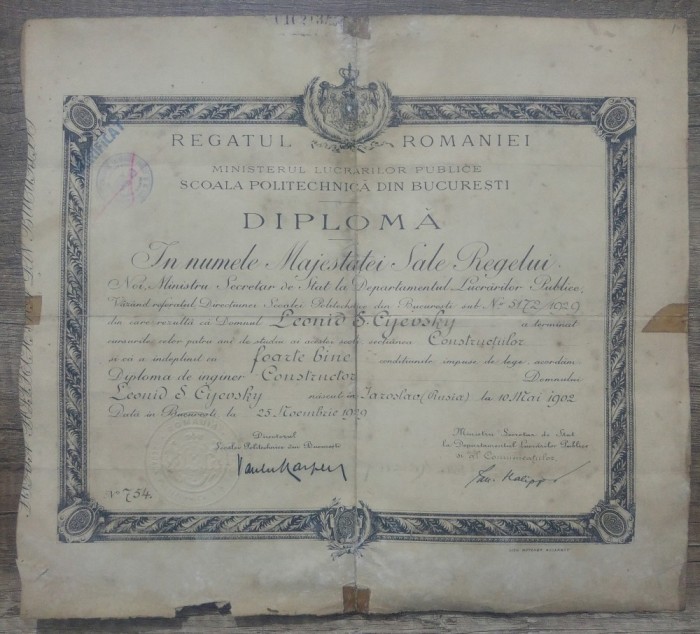 REGATUL ROMANIEI
MINISTERUL LUCRĂRILOR PUBLICE
SCOALA POLITECHNICĂ DIN BUCURESTI
DIPLOMĂ
In numele Majestatei Sale Regelui
Noi, Ministru Secretar de Stat la Departamentul Lucrărilor Publice,
Văzând referatul Directiunei Scoalei Politechnice din Bucuresti sub No 5172/1929
din care rezultă că Domnul Leonid S. Cijevsky a terminat
cursurile celor patru ani de studiu ai acestei scoli sectiunea Construcțiilor
si că a indeplinit cu foarte bine conditiunile impuse de lege, acordăm
Diploma de inginer Constructor Domnului
Leonid S Cijevsky născut in Iaroslav (Rusia) la 10 Mai 1902
Dată in Bucuresti la 25 Noembrie 1929
Directorul
Scoalei Politechnice din Bucuresti
Ministru Secretar de Stat
la Departamentul Lucrărilor Publice
si al Comunicațiilor
No 754